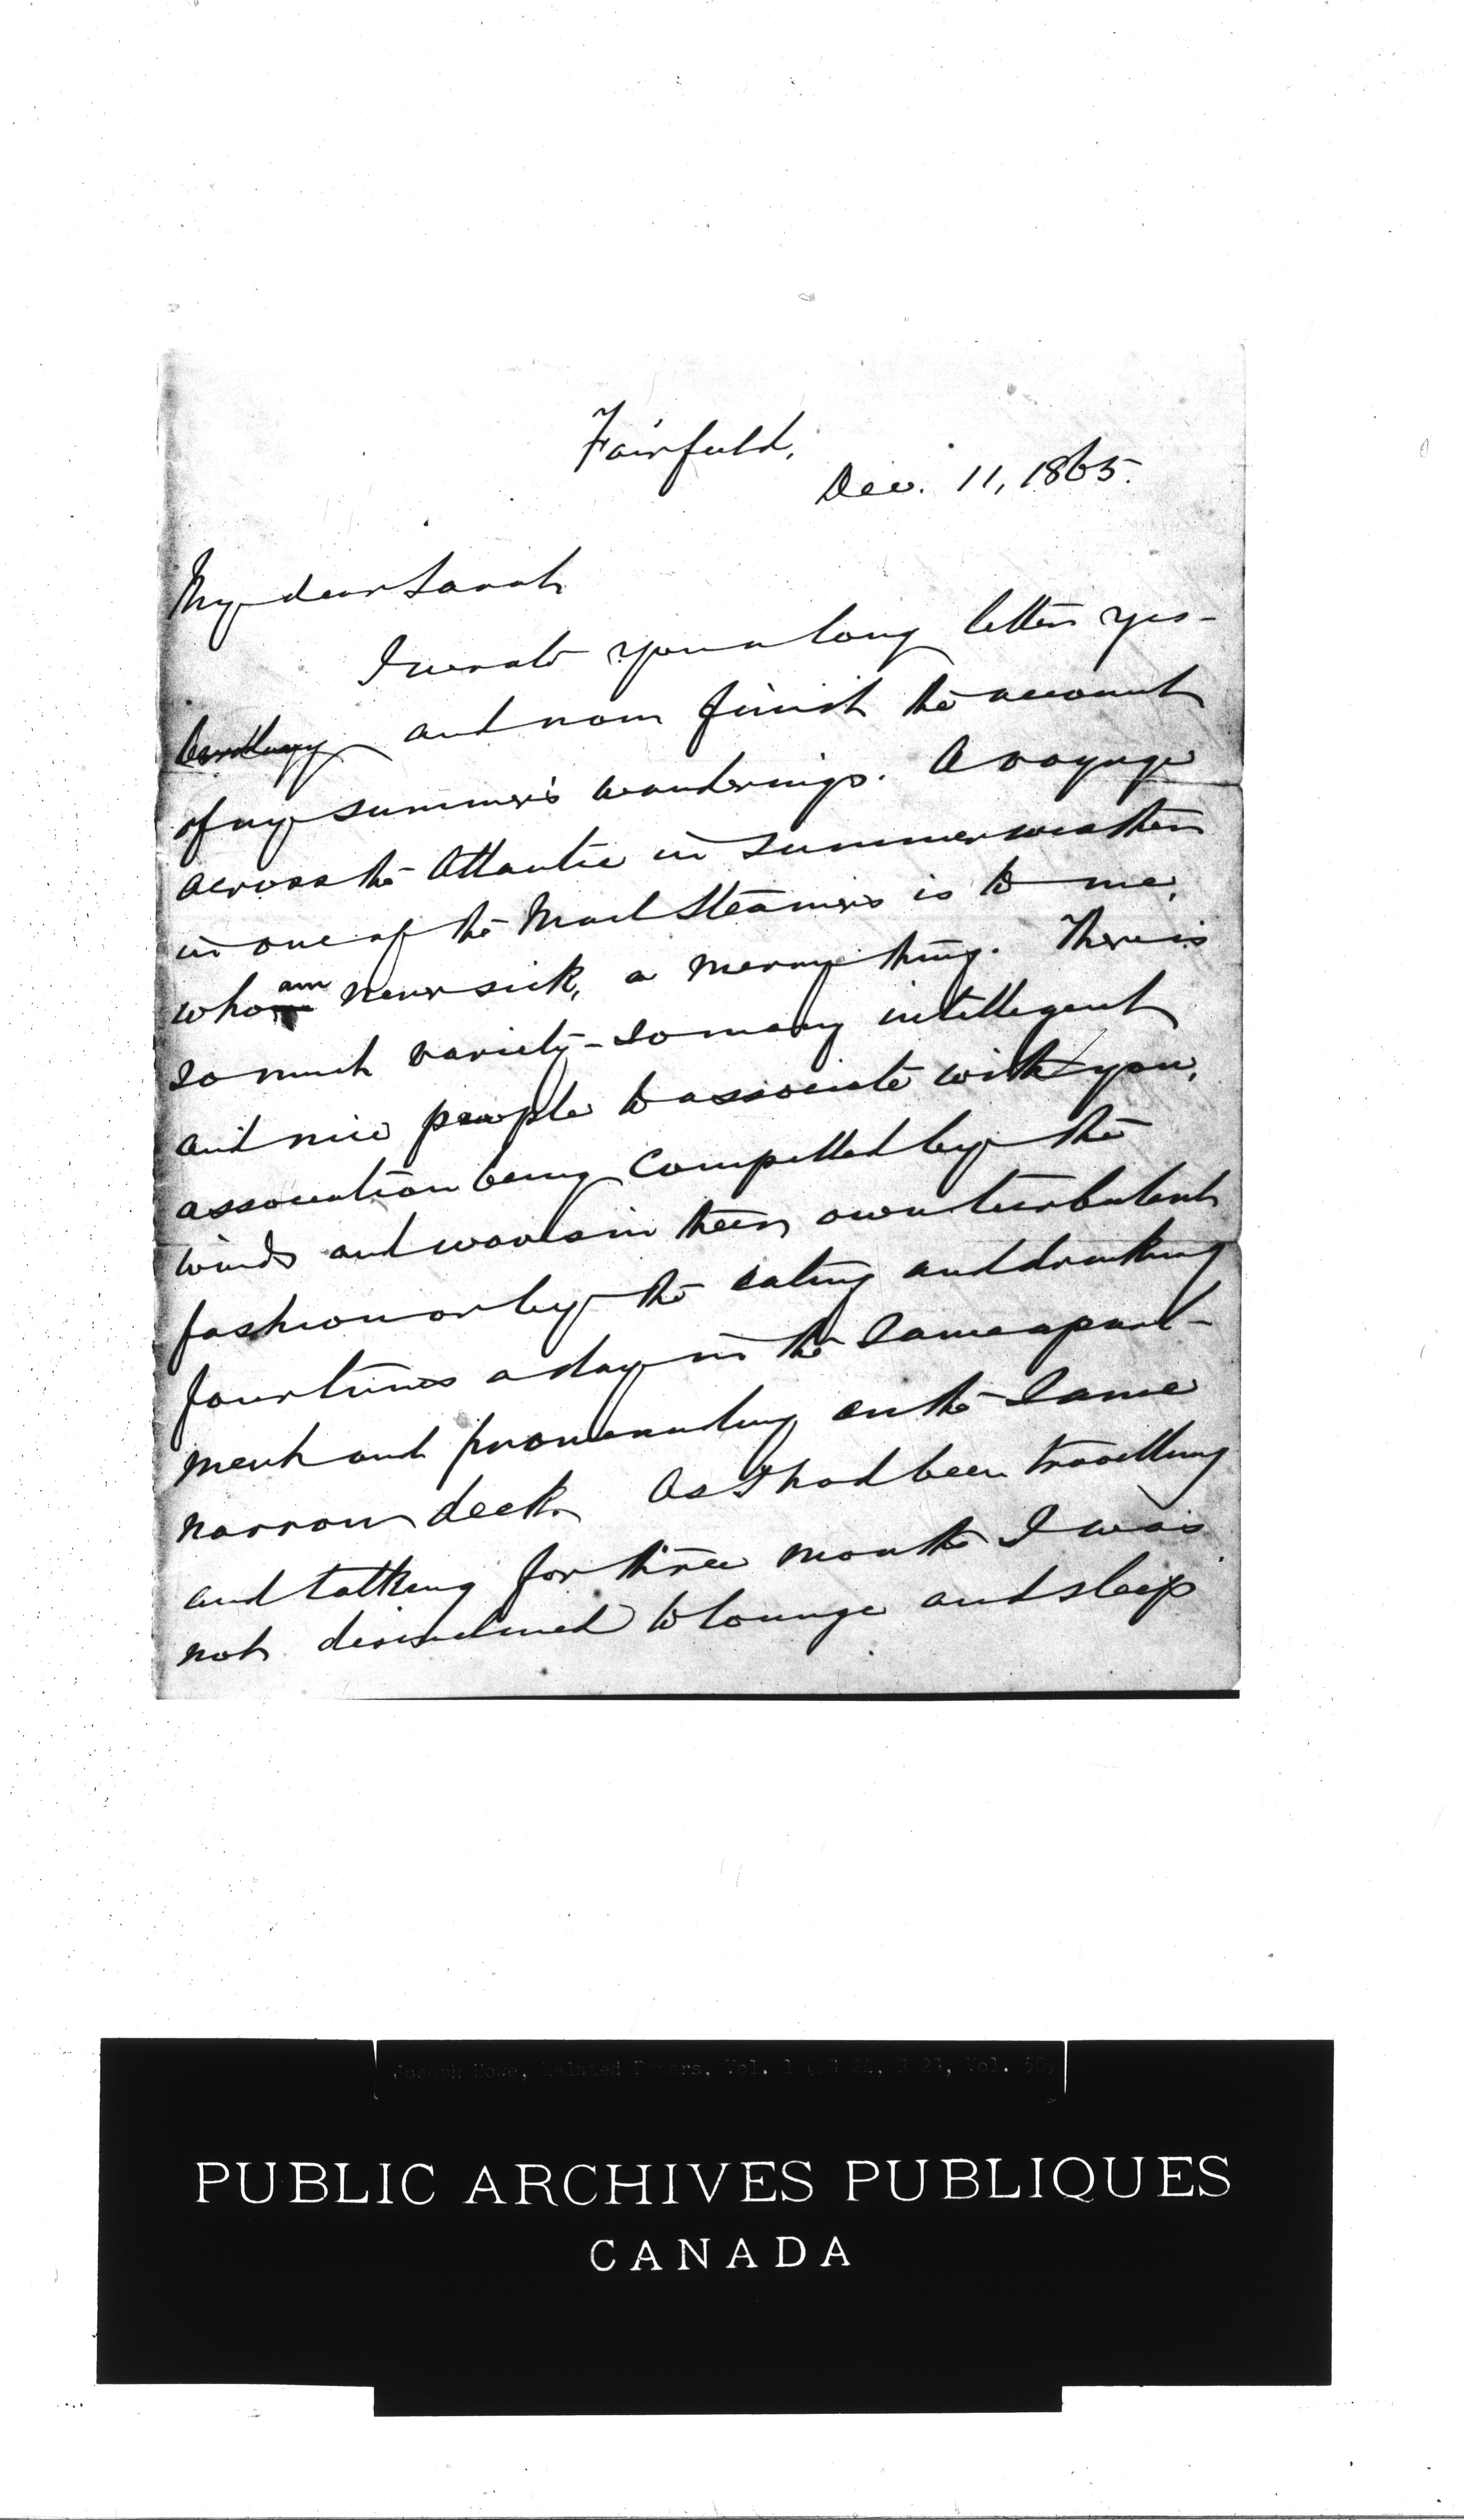 Fairfield,
Dec. 11, 1865.
My dear Sarah
I wrote you a long letter yes-
terday and now finish the account
of my summer's wanderings. A voyage
across the Atlantic in summer weather
in one of the Mail Steamers is to me,
who am never sick, a merry thing. There is
so much variety - so many intelligent
and nice people to associate with you,
association being compelled by the
winds and waves in their own turbulent
fashion or by the eating and drinking
four times a day in the same apart-
ment and promenading on the same
narrow deck. As I had been travelling
and talking for three months I was
not disinclined to lounge and sleep
Joseph Howe, Related Papers, Vol. 1 (MG 24, B 29, Vol. 50)
PUBLIC ARCHIVES PUBLIQUES
CANADA